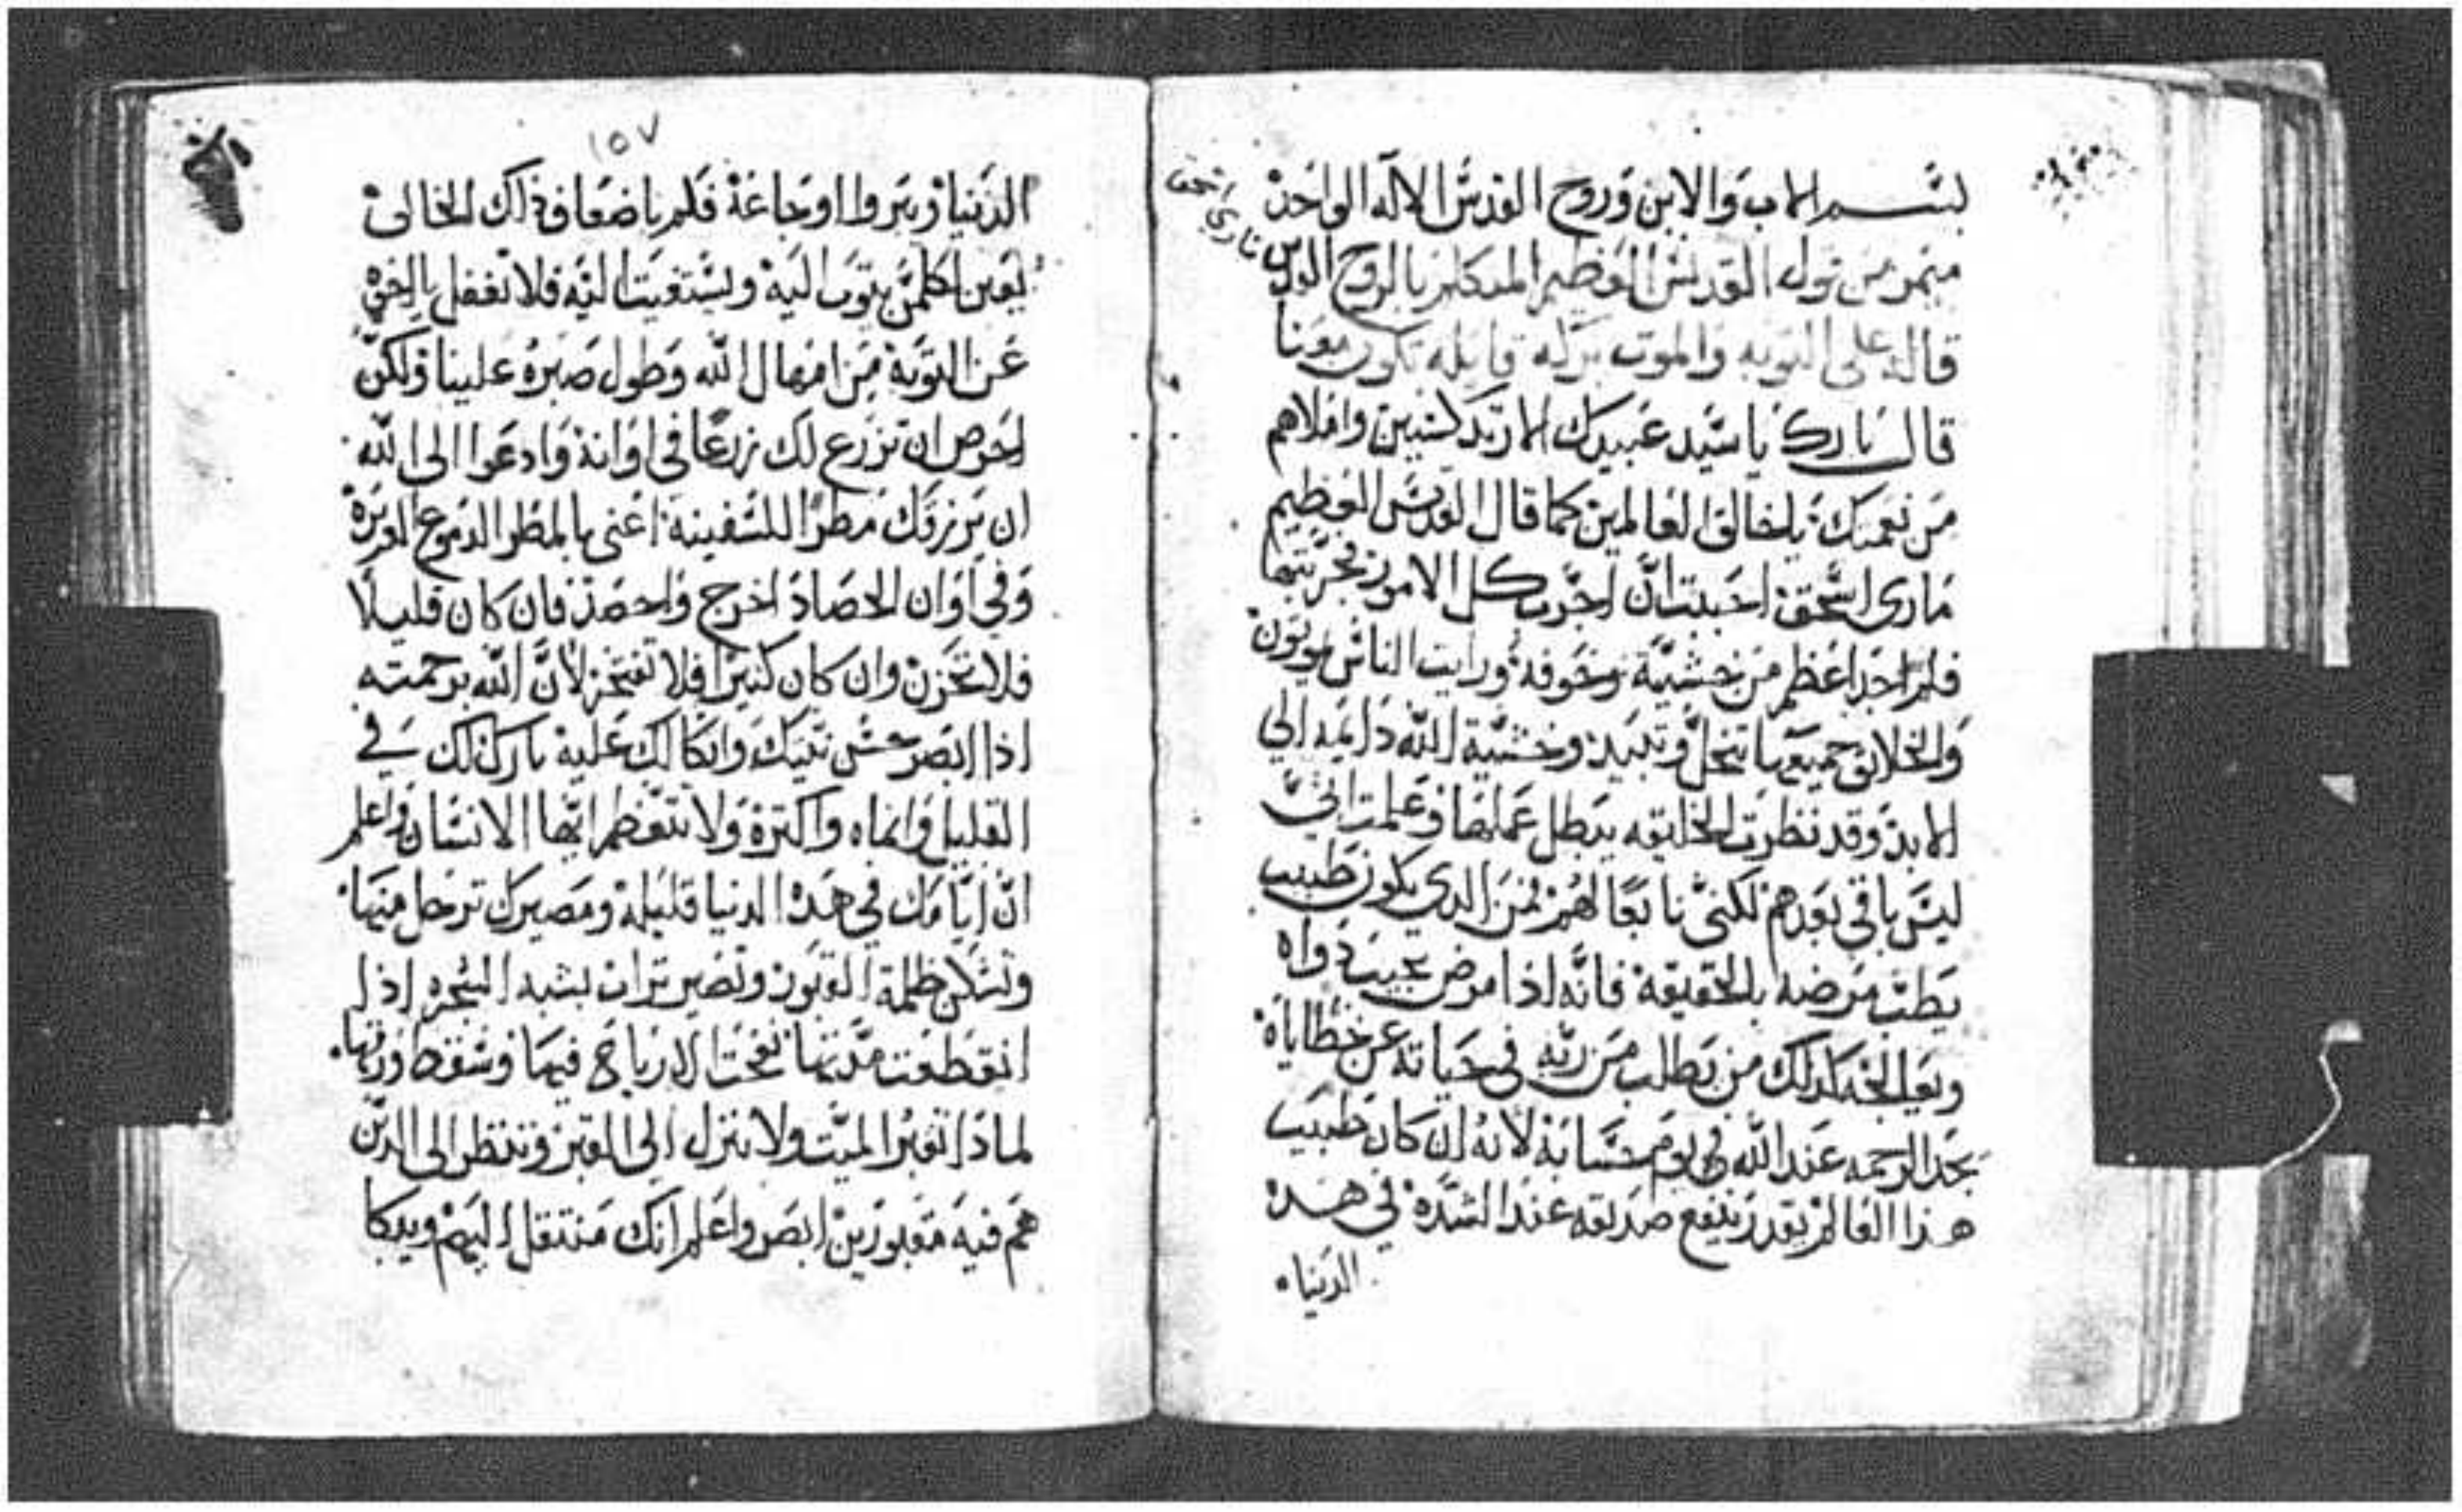 بسم الاب والابن وروح القدس الاله الواحد
ميمر من قول القديس العظيم المتكلم بالروح القدس
ماري اسحق
قاله على التوبه والموت بركه قايله تكون معنا
قال بارك يا سيد عبيدك الارتدكسيين واملاهم
من نعمتك يا خالق العالمين كما قال القديس العظيم
ماري اسحق احببت ان اجرب كل الامور فجربتها
فلم اجد اعظم من خشية وخوفه ورايت الناس يموتون
والخلايق جميعها تنحل وتبيد وخشية الله دايمه الي
الابد وقد نظرت الخليقه يبطل عملها وعلمت اني
ليس باقي بعدهم لكني تابعا لهم فمن الدي يكون طبيب
يطب مرضه بالحقيقة فانه اذا مرض يجيب دواه
ويعالجه كدلك من يطلب من ربه في حياته عن خطاياه
يجد الرحمه عند الله في يوم حسابة لانه ان كان طبيب
هذا العالم يقدر ينفع صديقه عند الشدة في هده
الدنيا
١٥٧
الدنيا فلم باضعاف ذلك الخالق
يعين لكلمن يتوب اليه ويستغيث اليه فلا تغفل يا اخي
عن التوبة من امهال الله وطول صبره علينا ولكن
احرص ان تزرع لك زرعا في اوانة وادعوا الى الله
ان يرزقك مطرا للسفينه اعنى بالمطر الدموع الغزيرة
وفي اوان الحصاد اخرج واحصد فان كان قليلا
فلا تحزن وان كان كثيرا فلا تفتخر لان الله برحمته
اذا ابصر حسن نيتك واتكالك عليه بارك لك في
القليل وانماه واكثرة ولا تتعظم ايها الانسان واعلم
ان ايامك في هده الدنيا قليلة ومصيرك ترحل منها
وتسكن ظلمة القبور وتصير تراب بشبه الشجره اذا
انقطعت مدتها نفخت الارياح فيها وسقط ورقها
لماذا تقبر الميت ولا تنزل الى القبر وتنظر الى الدين
هم فيه مقبورين ابصر واعلم انك منتقل اليهم ويبكا